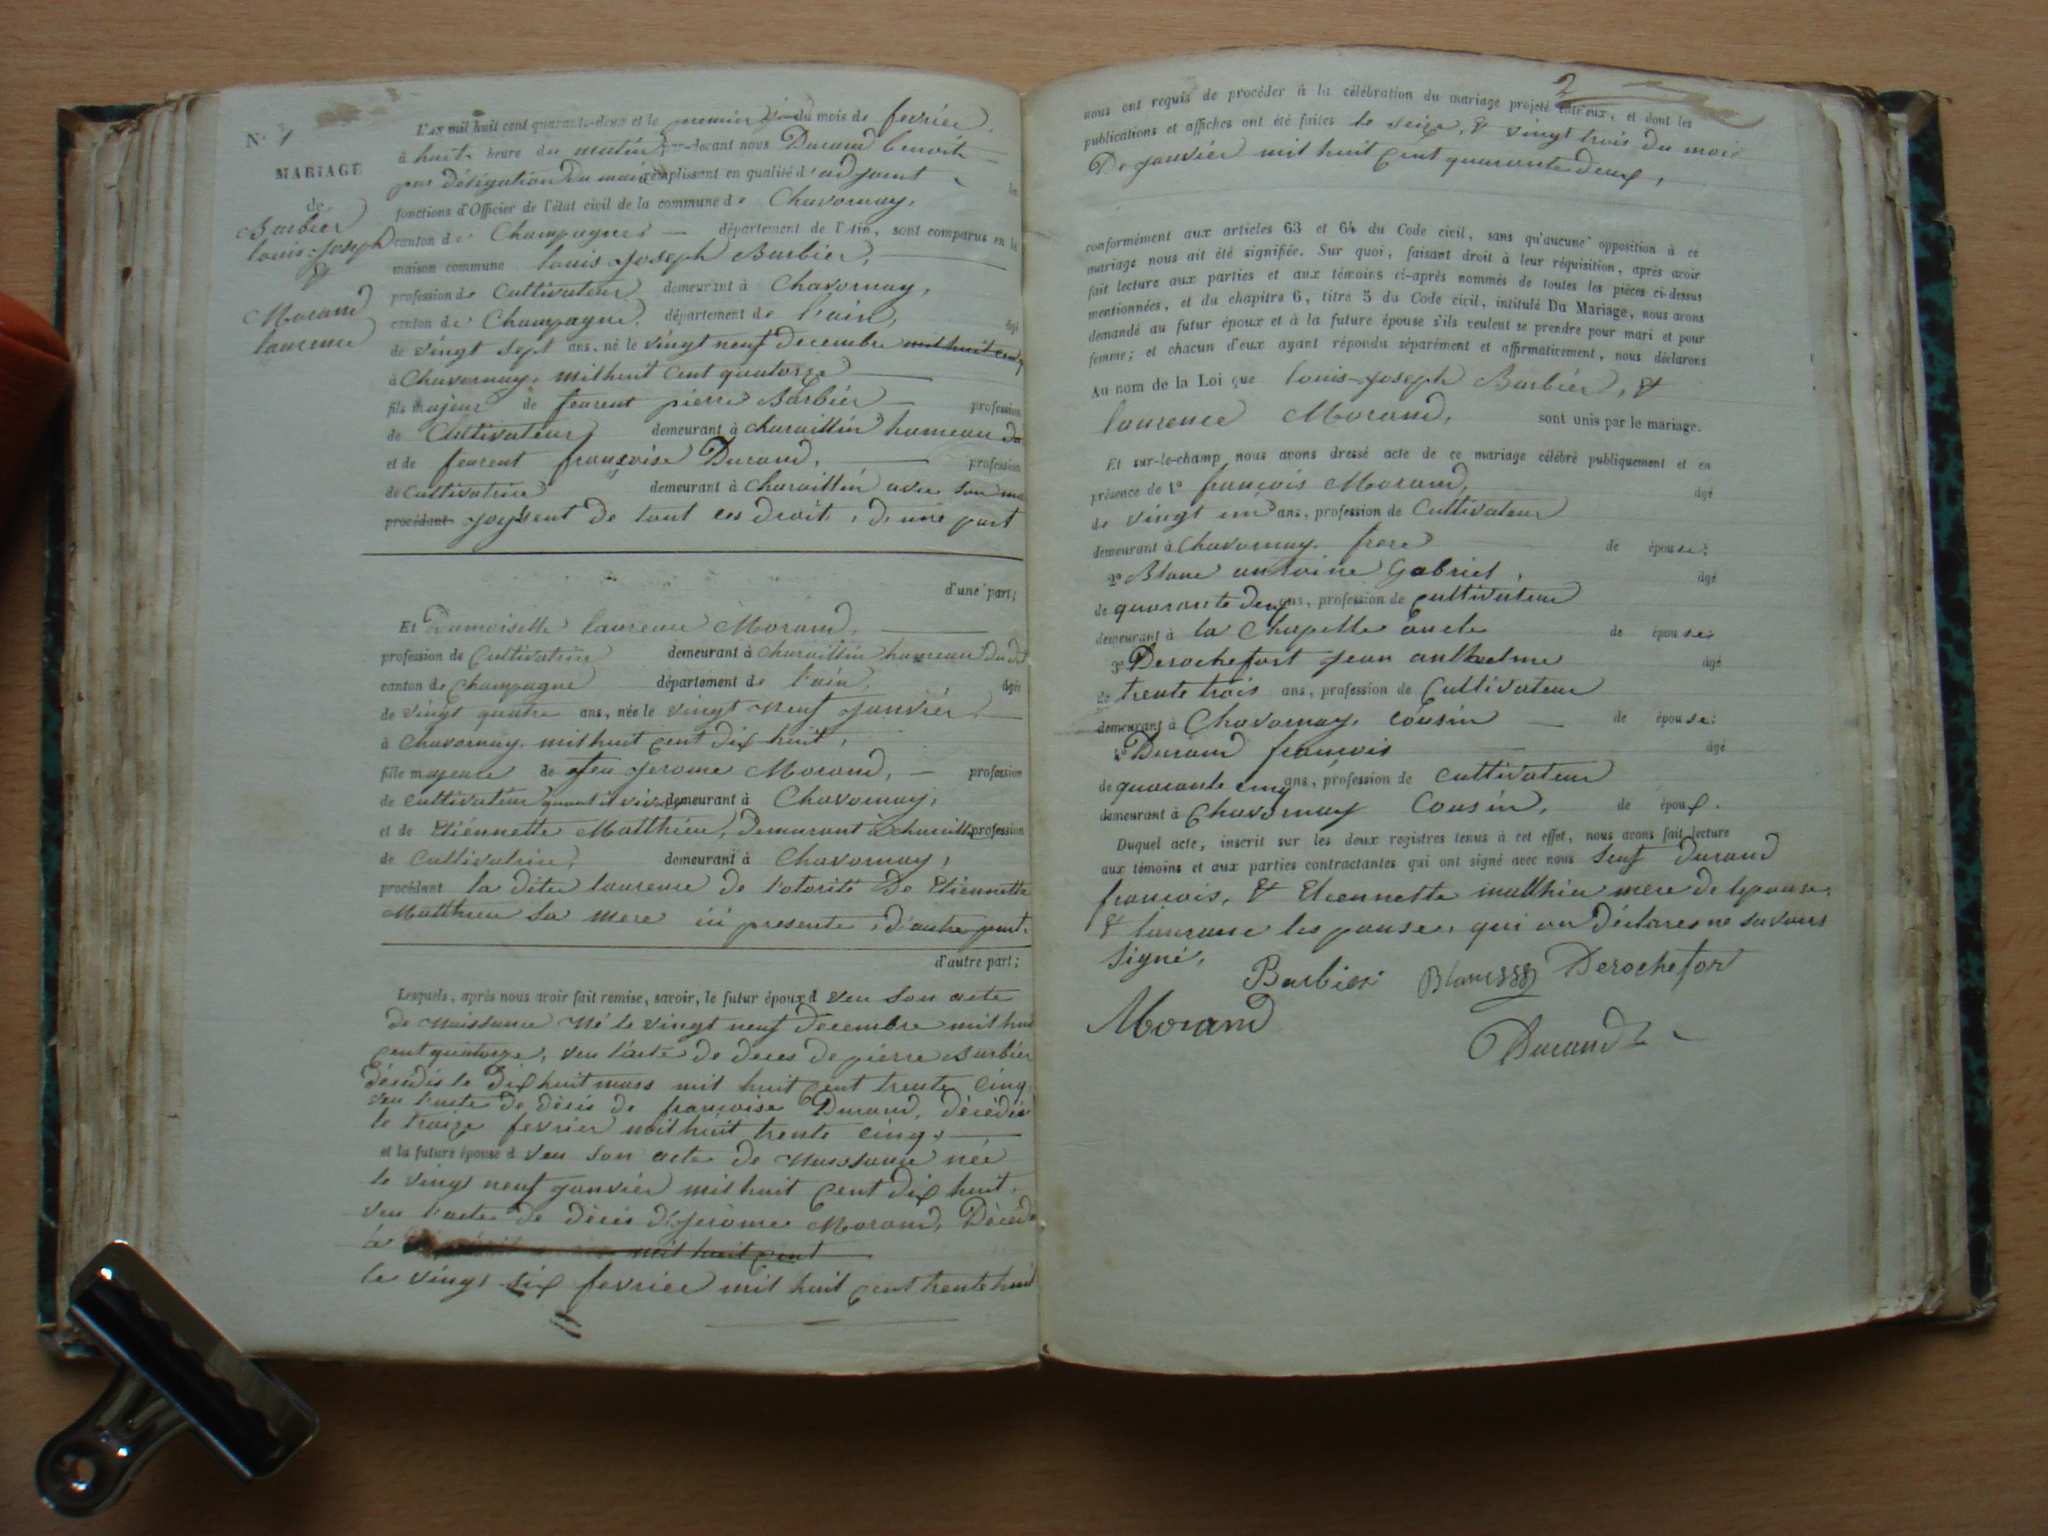 N.° 1
MARIAGE
de
Barbier
louis-joseph
&
Morand
laurence
L'AN mil huit cent quarante-deux et le premier du mois de fevrier,
à huit heure du matin par-devant nous Durand benoit
par délégation du maire remplissant en qualité d'adjoint les
fonctions d'Officier de l'état civil de la commune de Chavornay,
canton de Champagne département de l'Ain, sont comparus en la
maison commune louis joseph Barbier,
profession de Cultivateur demeurant à Chavornay,
canton de Champagne, département de l'ain, âgé
de vingt sept ans, né le vingt neuf decembre mil huit cent
à Chavornay, mil huit cent quatorze
fils majeur de feurent pierre Barbier profession
de Cultivateur demeurant à charaillin hameau du
et de feurent françoise Durand, profession
de Cultivatrice demeurant à charaillin avec son ma
procédant joyssent de tout ces droit, d'une part
d'une part;
Et Damoiselle laurence Morand,
profession de Cultivatrice demeurant à charaillin hameau dudit
canton de Champagne département de l'ain, âgée
de vingt quatre ans, née le vingt neuf janvier
à Chavornay, mil huit cent dix huit,
fille majeure de feu jerome Morand, profession
de cultivateur quant il vivez demeurant à Chavornay,
et de Etiennette Matthieu, demeurant à charaillin profession
de Cultivatrice, demeurant à Chavornay,
procédant la dite laurence de l'otorité de Etiennette
Matthieu sa mere ici presente, d'autre part.
d'autre part;
Lesquels, après nous avoir fait remise, savoir, le futur époux d veu son acte
de Naissance Né le vingt neuf decembre mil huit
cent quatorze, veu l'acte de deces de pierre Barbier
décédés le dix huit mars mil huit cent trente cinq
veu l'acte de décés de françoise Durand, décédée
le traize fevrier mil huit trente cinq,
et la future épouse d veu son acte de Naissance née
le vingt neuf janvier mil huit cent dix huit,
veu l'acte de décés de jerome Morand, Décédé
à mil huit cent
le vingt six fevrier mil huit cent trente huit
2
nous ont requis de procéder à la célébration du mariage projeté entr'eux, et dont les
publications et affiches ont été faites le seize, & vingt trois du mois
De janvier mil huit cent quarante deux,
conformément aux articles 63 et 64 du Code civil, sans qu'aucune opposition à ce
mariage nous ait été signifiée. Sur quoi, faisant droit à leur réquisition, après avoir
fait lecture aux parties et aux témoins ci-après nommés de toutes les pièces ci-dessus
mentionnées, et du chapitre 6, titre 5 du Code civil, intitulé Du Mariage, nous avons
demandé au futur époux et à la future épouse s'ils veulent se prendre pour mari et pour
femme; et chacun d'eux ayant répondu séparément et affirmativement, nous déclarons
Au nom de la Loi que louis-joseph Barbier, &
laurence Morand, sont unis par le mariage.
Et sur-le-champ nous avons dressé acte de ce mariage célébré publiquement et en
présence de 1° françois Morand, âgé
de vingt un ans, profession de Cultivateur
demeurant à Chavornay frere de épouse;
2° Blanc antoine Gabriel, âgé
de quarante deux ans, profession de cultivateur
demeurant à la Chapelle oncle de épouse;
3° Derochefort jean anthelme âgé
de trente trois ans, profession de Cultivateur
demeurant à Chavornay, cousin de épouse;
4° Durand françois âgé
de quarante cinq ans, profession de cultivateur
demeurant à Chavornay Cousin, de époux.
Duquel acte, inscrit sur les deux registres tenus à cet effet, nous avons fait lecture
aux témoins et aux parties contractantes qui ont signé avec nous seuf durand
françois, & Etiennette matthieu mere de lepouse,
& laurance lespouse, qui on déclares ne savoirs
signé,
Barbier Blanc Derochefort
Morand
Durand